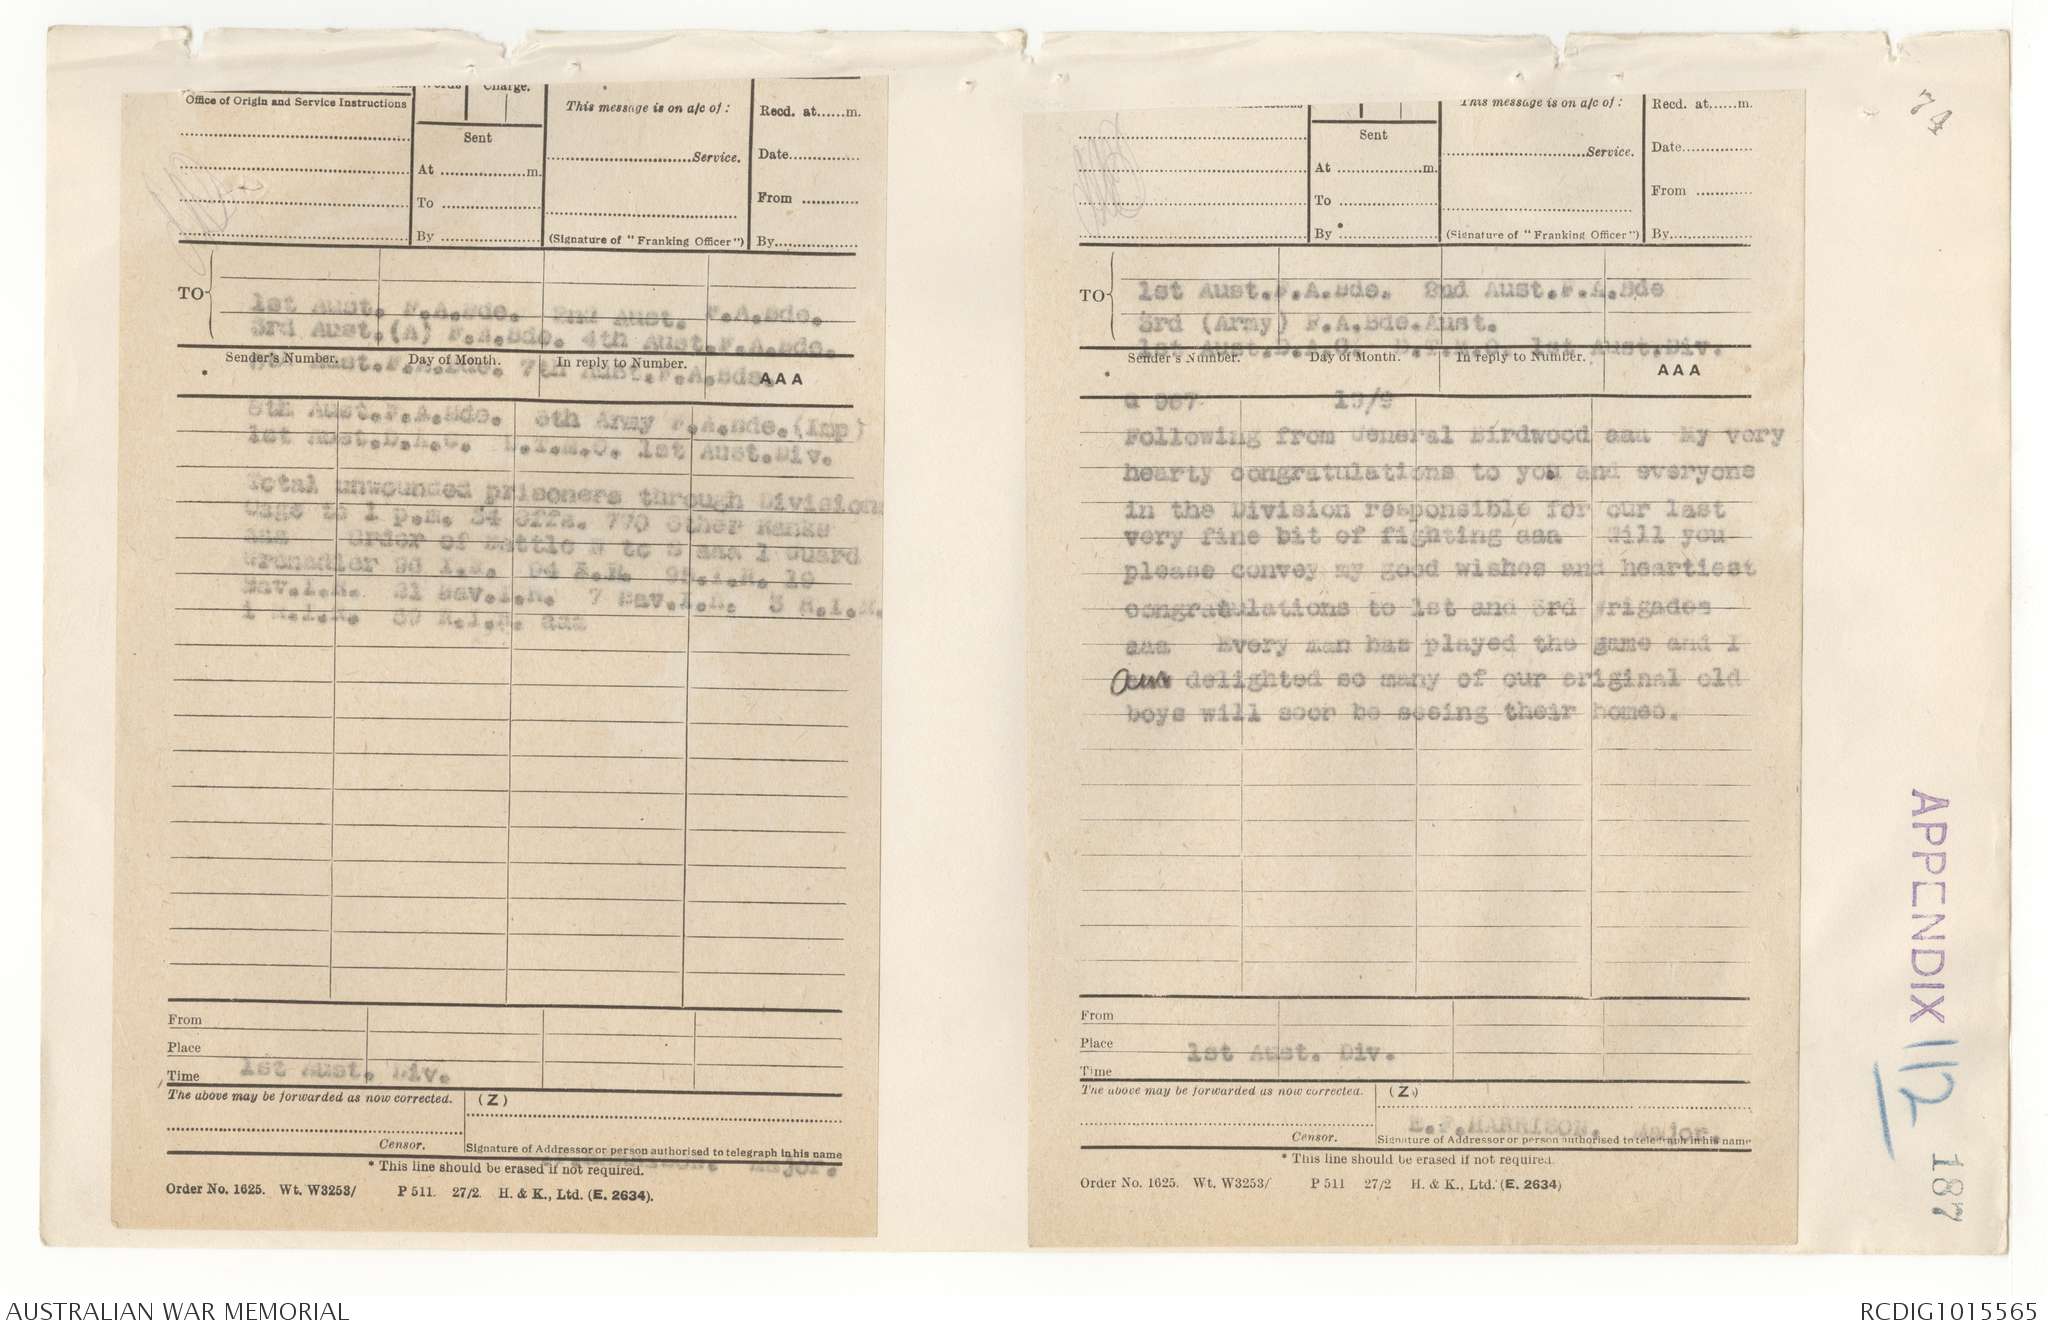 Words Charge.
Office of Origin and Service Instructions
Sent
At ......m.
To ......
By ......
This message is on a/c of :
......Service.
(Signature of "Franking Officer")
Recd. at......m.
Date......
From ......
By......
TO
1st Aust. F.A.Bde. 2nd Aust. F.A.Bde.
3rd Aust.(A) F.A.Bde. 4th Aust.F.A.Bde.
Sender's Number. Day of Month. In reply to Number. AAA
Aust.F.A.Bde. 7th Aust.F.A.Bde.
8th Aust.F.A.Bde. Army F.A.Bde.(Imp)
1st Aust.D.A.C. D.T.M.O. 1st Aust.Div.
Total unwounded prisoners through Divisional
Cage to 1 p.m. 34 Offs. 770 Other Ranks
aaa Order of Battle N to S aaa 1 Guard
Grenadier 96 I.R. 94 I.R. 95.I.R. 19
Bav.I.R. 21 Bav.I.R. 7 Bav.I.R. 3 R.I.R.
1 R.I.R. R.I.R. aaa
From
Place
Time
1st Aust. Div.
The above may be forwarded as now corrected. (Z)
Censor. Signature of Addressor or person authorised to telegraph in his name
Major.
* This line should be erased if not required.
Order No. 1625. Wt. W3253/ P 511. 27/2. H. & K., Ltd. (E. 2634).
Sent
At ......m.
To ......
By
This message is on a/c of :
......Service.
(Signature of "Franking Officer")
Recd. at......m.
Date......
From ......
By......
TO
1st Aust.F.A.Bde. 2nd Aust.F.A.Bde
3rd (Army) F.A.Bde.Aust.
1st Aust.D.A.C. D.T.M.O. 1st Aust.Div.
Sender's Number. Day of Month. In reply to Number. AAA
G 987 19/9
Following from General Birdwood aaa My very
hearty congratulations to you and everyone
in the Division responsible for our last
very fine bit of fighting aaa Will you
please convey my good wishes and heartiest
congratulations to 1st and 3rd Brigades
aaa Every man has played the game and I
am delighted so many of our original old
boys will soon be seeing their homes.
From
Place
Time
1st Aust. Div.
The above may be forwarded as now corrected. (Z)
E.F.HARRISON. Major.
Censor. Signature of Addressor or person authorised to telegraph in his name
* This line should be erased if not required.
Order No. 1625. Wt. W3253/ P 511 27/2 H. & K., Ltd. (E. 2634)
74
APPENDIX 112
187
AUSTRALIAN WAR MEMORIAL
RCDIG1015565